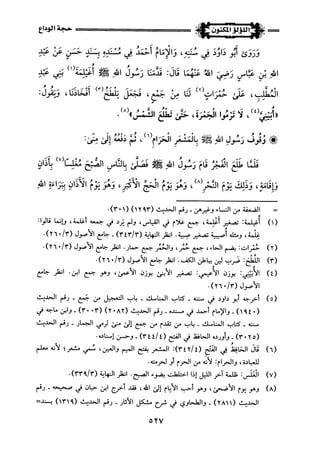 اللؤلؤ المكنون
حجة الوداع
وَرَوَى أَبُو دَاوُدَ فِي سُنَنِهِ، وَالْإِمَامُ أَحْمَدُ فِي مُسْنَدِهِ بِسَنَدٍ حَسَنٍ عَنْ عَبْدِ
اللهِ بْنِ عَبَّاسٍ رَضِيَ اللهُ عَنْهُمَا قَالَ: قَدَّمَنَا رَسُولُ اللهِ ﷺ أُغَيْلِمَةَ(١) بَنِي عَبْدِ
الْمُطَّلِبِ، عَلَى حُمُرَاتٍ(٢) لَنَا مِنْ جَمْعٍ، فَجَعَلَ يَلْطَحُ(٣) أَفْخَاذَنَا، وَيَقُولُ:
«أُبَيْنِيَّ(٤)، لَا تَرْمُوا الْجَمْرَةَ، حَتَّى تَطْلُعَ الشَّمْسُ»(٥).
وُقُوفُ رَسُولِ اللهِ ﷺ بِالْمَشْعَرِ الْحَرَامِ(٦)، ثُمَّ دَفْعُهُ إِلَى مِنًى:
فَلَمَّا طَلَعَ الْفَجْرُ قَامَ رَسُولُ اللهِ ﷺ فَصَلَّى بِالنَّاسِ الصُّبْحَ مُغَلِّسًا(٧) بِأَذَانٍ
وَإِقَامَةٍ، وَذَلِكَ يَوْمَ النَّحْرِ(٨)، وَهُوَ يَوْمُ الْحَجِّ الْأَكْبَرِ، وَهُوَ يَوْمُ الْأَذَانِ بِبَرَاءَةِ اللهِ
= الضعفة من النساء وغيرهن - رقم الحديث (١٢٩٣) (٣٠١).
(١) أغيلمة: تصغير أغلمة، جمع غلام في القياس، ولم يرد في جمعه أغلمة، وإنما قالوا:
غلمة، ومثله أصيبية تصغير صبية. انظر النهاية (٣٤٣/٣) - جامع الأصول (٢٦٠/٣).
(٢) حُمُرات: بضم الحاء، جمع حُمُر، والحُمُر جمع حمار. انظر جامع الأصول (٢٦٠/٣).
(٣) اللَّطْحُ: ضرب لين بباطن الكف. انظر جامع الأصول (٢٦٠/٣).
(٤) الأُبَيْنِي: بوزن الأعيمي: تصغير الأبنى بوزن الأعمى، وهو جمع ابن. انظر جامع
الأصول (٢٦٠/٣).
(٥) أخرجه أبو داود في سننه - كتاب المناسك - باب التعجيل من جمع - رقم الحديث
(١٩٤٠) - والإمام أحمد في مسنده - رقم الحديث (٢٠٨٢) (٣٠٠٣) - وابن ماجه في
سننه - كتاب المناسك - باب من تقدم من جمع إلى منى لرمي الجمار - رقم الحديث
(٣٠٢٥) - وأورده الحافظ في الفتح (٣٤٤/٤) - وحسن إسناده.
(٦) قَالَ الْحَافِظُ فِي الْفَتْحِ (٣٤٢/٤): المشعر بفتح الميم والعين، سُمي مشعر؛ لأنه معلم
للعبادة، والحرام: لأنه من الحرم أو لحرمته.
(٧) الْغَلَسُ: ظلمة آخر الليل إذا اختلطت بضوء الصبح. انظر النهاية (٣٣٩/٣).
(٨) وهو يوم الأضحى، وهو أحب الأيام إلى الله، فقد أخرج ابن حبان في صحيحه - رقم
الحديث (٢٨١١) - والطحاوي في شرح مشكل الآثار - رقم الحديث (١٣١٩) بسند=
٥٢٧